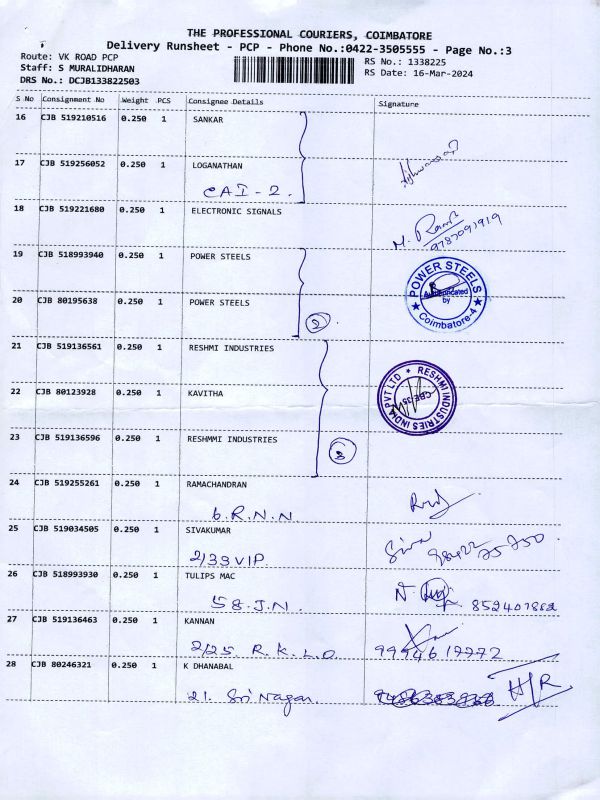 THE PROFESSIONAL COURIERS, COIMBATORE
Delivery Runsheet - PCP - Phone No.:0422-3505555 - Page No.:3
Route: VK ROAD PCP
Staff: S MURALIDHARAN
DRS No.: DCJB133822503
RS No.: 1338225
RS Date: 16-Mar-2024
S No Consignment No Weight PCS Consignee Details Signature
16 CJB 519210516 0.250 1 SANKAR
17 CJB 519256052 0.250 1 LOGANATHAN
CAI-2.
18 CJB 519221680 0.250 1 ELECTRONIC SIGNALS
M. Ram
9787091919
19 CJB 518993940 0.250 1 POWER STEELS
POWER STEELS
Authenticated
by
Coimbatore-4
20 CJB 80195638 0.250 1 POWER STEELS
2
21 CJB 519136561 0.250 1 RESHMI INDUSTRIES
22 CJB 80123928 0.250 1 KAVITHA
RESHMI INDUSTRIES INDIA PVT LTD
CBE-35
23 CJB 519136596 0.250 1 RESHMMI INDUSTRIES
3
24 CJB 519255261 0.250 1 RAMACHANDRAN
6.R.N.N
25 CJB 519034505 0.250 1 SIVAKUMAR
2/33 VIP.
Siva
26 CJB 518993930 0.250 1 TULIPS MAC
58.J.N.
27 CJB 519136463 0.250 1 KANNAN
2/25 R.K.L.O
9994617772
28 CJB 80246321 0.250 1 K DHANABAL
21. Sri Nagar.
H/R